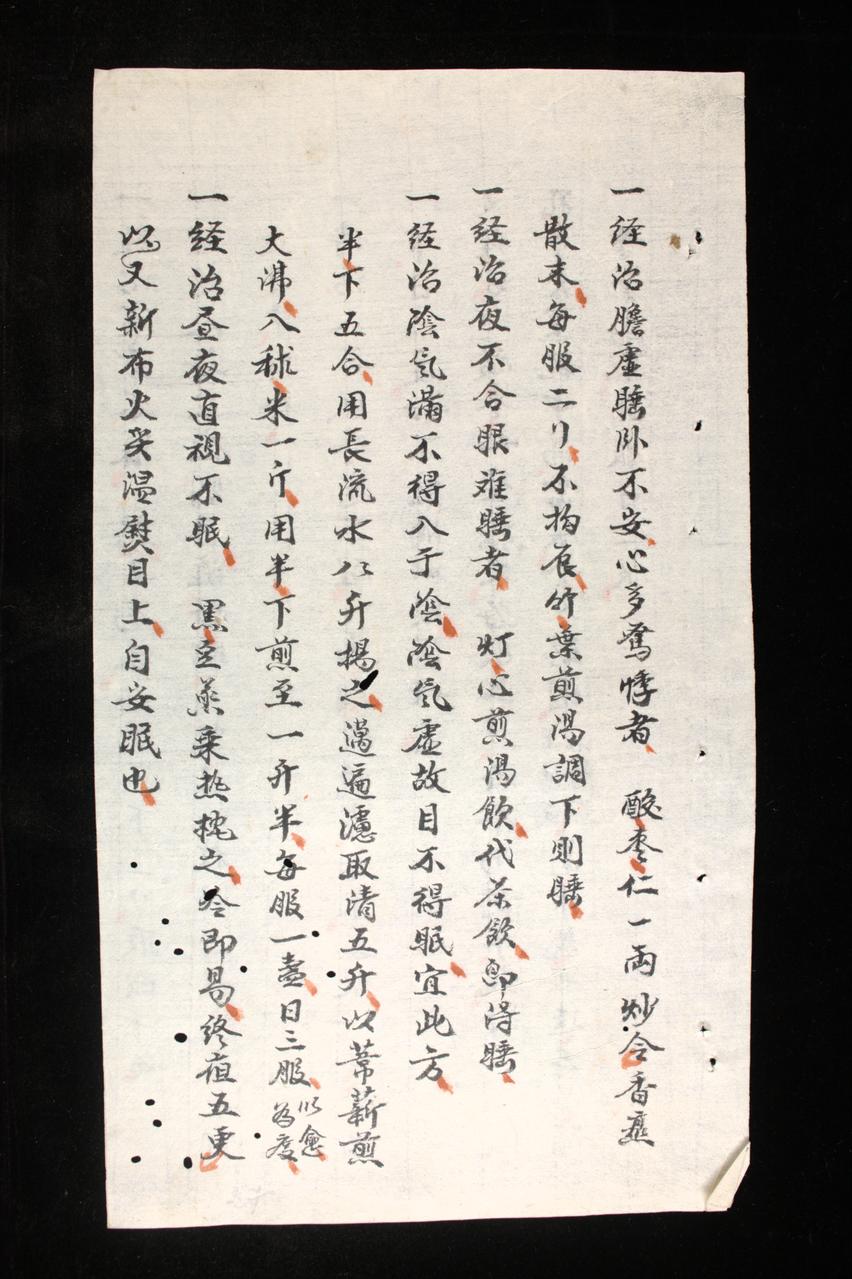 一経治膽虚睡卧不安心多驚悸者 酸枣仁一両炒令香熟
散末每服二刂不拘辰竹葉煎湯調下則睡
一経治夜不合眼难睡者 灯心煎湯飲代茶飲即得睡
一経治陰氣滿不得入于陰陰氣虚故目不得眠宜此方
半下五合用長流水八升揚之邁遍濾取清五升以葦薪煎
大沸入秫米一斤用半下煎至一升半每服一盞日三服以愈為度
一経治昼夜直視不眠 黒豆蒸乗热枕之冷即易終疽五更
以又新布火炙温熨目上自安眠也